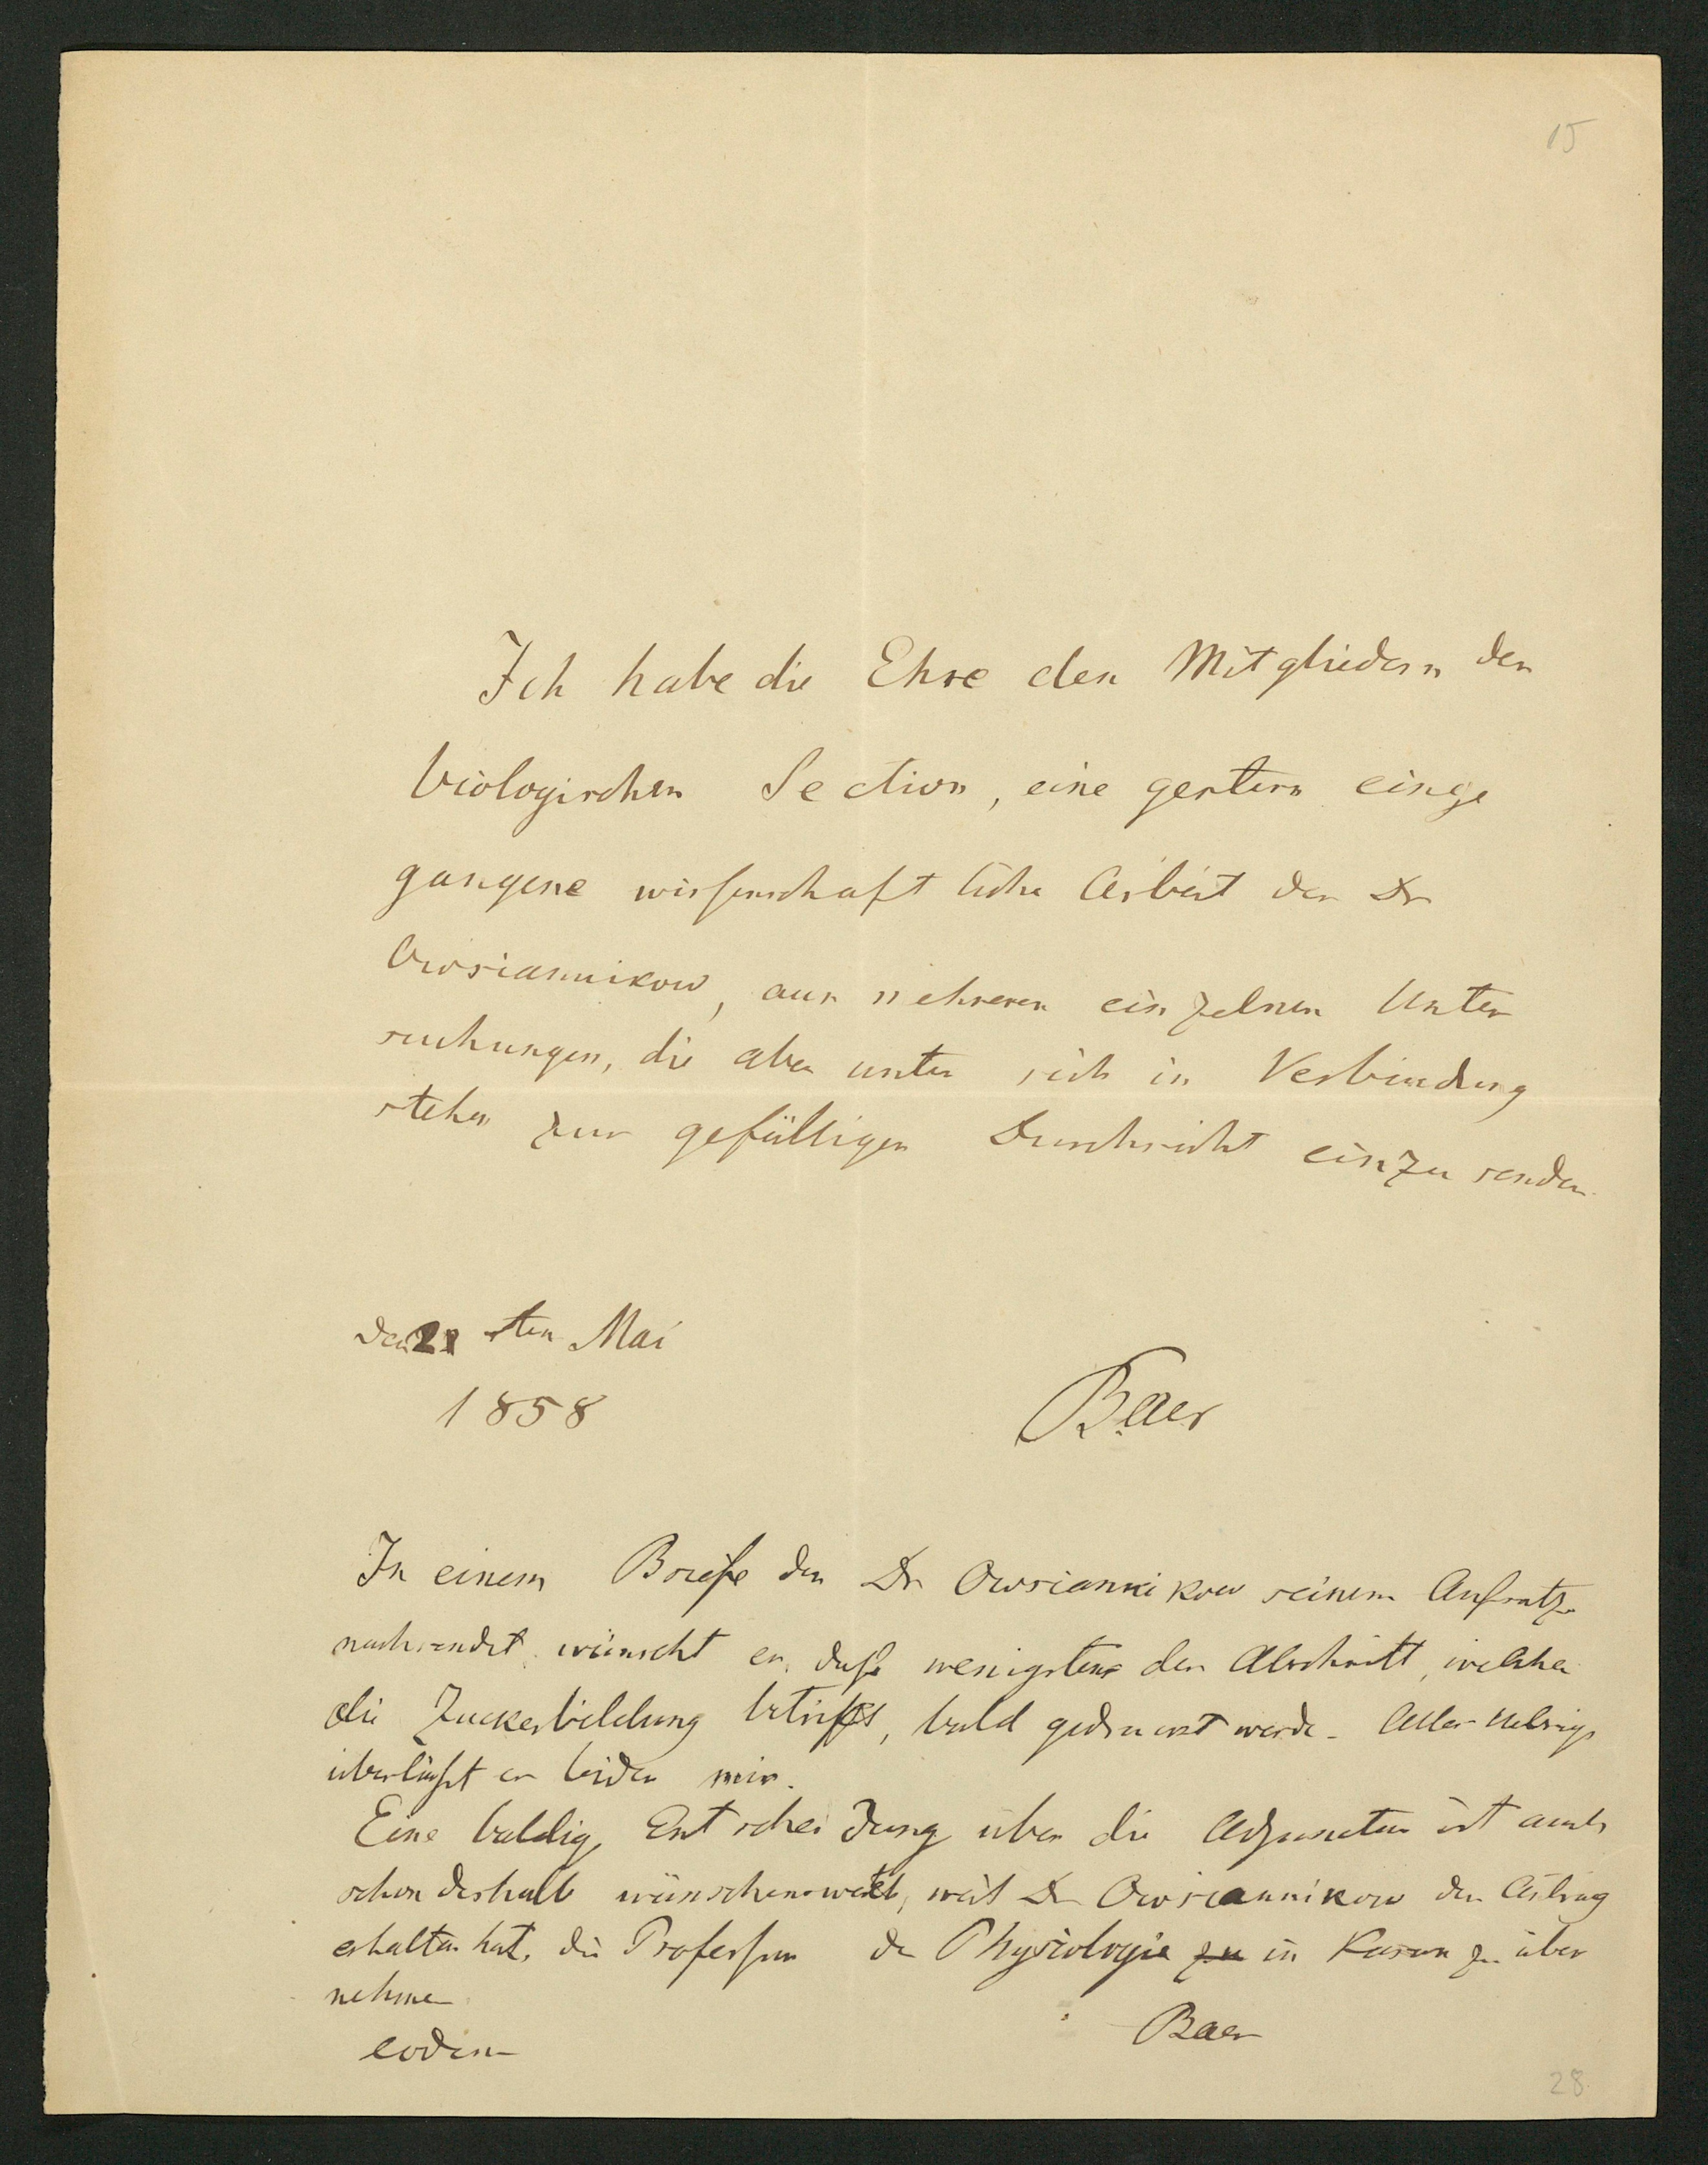 15
Ich habe die Ehre den Mitgliedern der
biologischen Section, eine gestern einge
gangene wissenschaftliche Arbeit des Dr
Owsiannikow, aus mehreren einzelnen Unter
suchungen, die aber unter sich in Verbindung
stehen zur gefälligen Durchsicht einzusenden
den 21 sten Mai
1858
Baer
In einem Briefe den Dr Owsiannikow seinem Aufsatze
nachsendet wünscht er, daß wenigstens der Abschnitt, welcher
die Zuckerbildung betrifft, bald gedruckt werde. Alles Uebrige
überläßt er beiden mir.
Eine baldige Entscheidung über die Adjunctur ist auch
schon deshalb wünschenswerth, weil Dr Owsiannikow den Antrag
erhalten hat, die Professur der Physiologie zu in Kasan zu über
nehmen
Baer
eodem
28